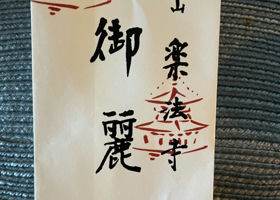 山 楽法寺
御麗